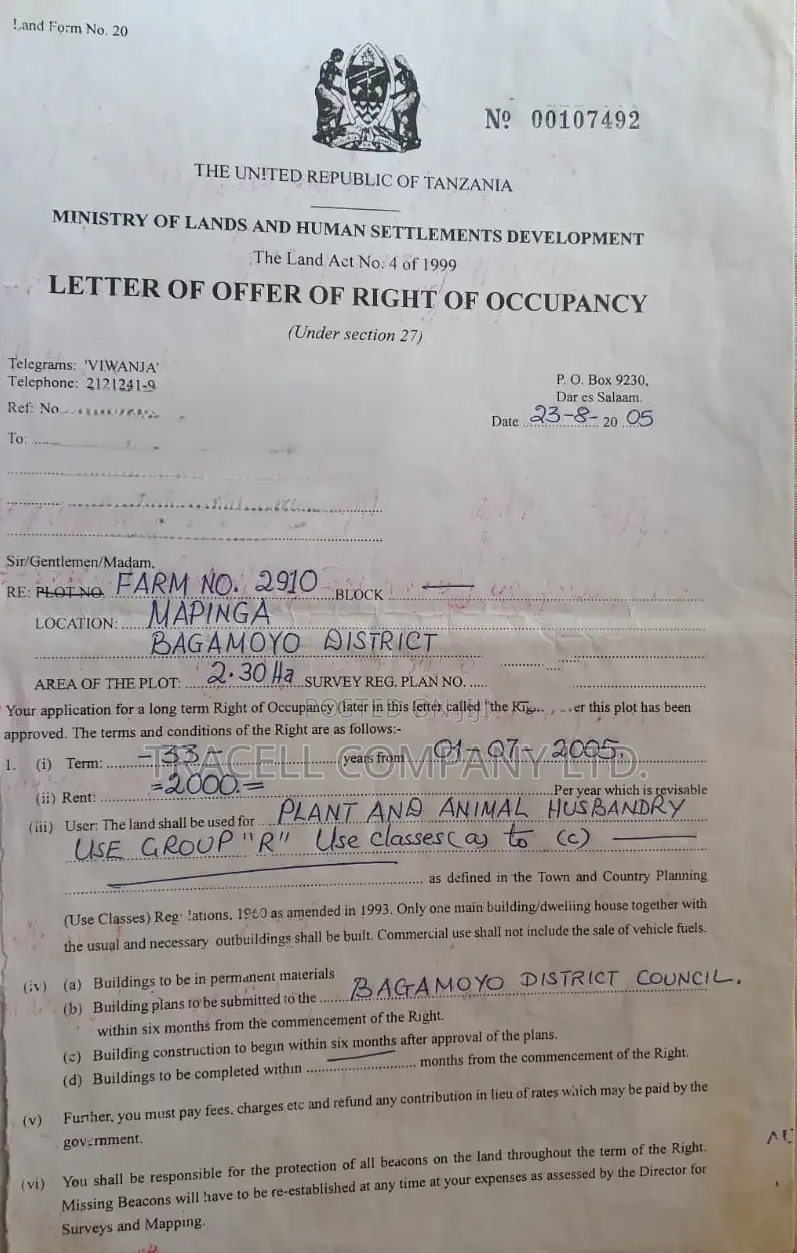 Land Form No. 20
Nº 00107492
THE UNITED REPUBLIC OF TANZANIA
MINISTRY OF LANDS AND HUMAN SETTLEMENTS DEVELOPMENT
The Land Act No. 4 of 1999
LETTER OF OFFER OF RIGHT OF OCCUPANCY
(Under section 27)
Telegrams: 'VIWANJA'
Telephone: 2121241-9
P. O. Box 9230,
Dar es Salaam.
Ref: No
Date 23-8- 20 05
To:
Sir/Gentlemen/Madam,
RE: PLOT NO. FARM NO. 2910 BLOCK —
LOCATION: MAPINGA
BAGAMOYO DISTRICT
AREA OF THE PLOT: 2.30 Ha SURVEY REG. PLAN NO.
Your application for a long term Right of Occupancy (later in this letter called "the er this plot has been
POSTED ON
approved. The terms and conditions of the Right are as follows:-
TRACELL COMPANY LTD.
1. (i) Term: -33- years from 01-07-2005.
(ii) Rent: =2000.= Per year which is revisable
(iii) User: The land shall be used for PLANT AND ANIMAL HUSBANDRY
USE GROUP "R" Use classes (a) to (c) —
as defined in the Town and Country Planning
(Use Classes) Regulations, 1960 as amended in 1993. Only one main building/dwelling house together with
the usual and necessary outbuildings shall be built. Commercial use shall not include the sale of vehicle fuels.
(iv) (a) Buildings to be in permanent materials
(b) Building plans to be submitted to the BAGAMOYO DISTRICT COUNCIL.
within six months from the commencement of the Right.
(c) Building construction to begin within six months after approval of the plans.
(d) Buildings to be completed within — months from the commencement of the Right.
(v) Further, you must pay fees, charges etc and refund any contribution in lieu of rates which may be paid by the
government.
(vi) You shall be responsible for the protection of all beacons on the land throughout the term of the Right.
Missing Beacons will have to be re-established at any time at your expenses as assessed by the Director for
Surveys and Mapping.